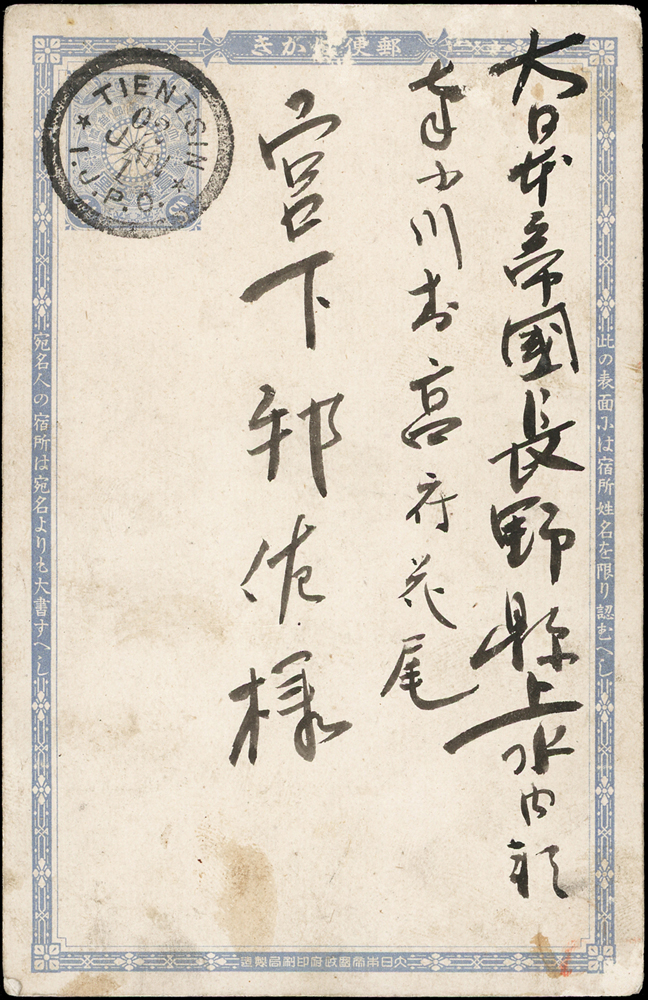 郵便はかき
此の表面には宿所姓名を限り認むへし
大日本帝國長野縣上水内郡
南小川村高府花尾
宮下邦佐様
宛名人の宿所は宛名よりも大書すへし
TIENTSIN
I.J.P.O.
大日本帝國政府印刷局製造